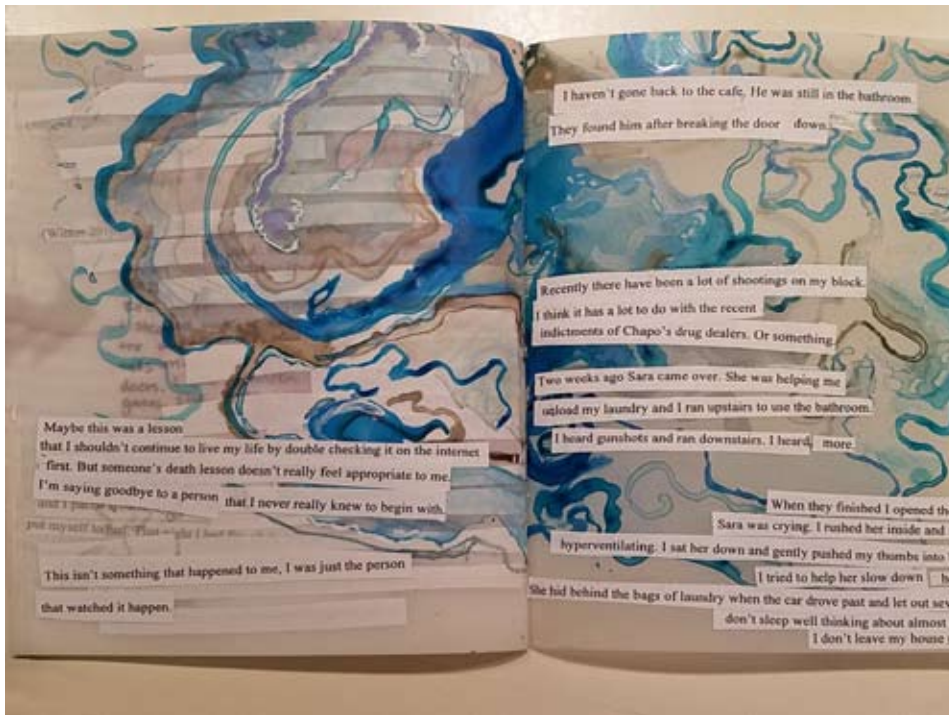 Maybe this was a lesson
that I shouldn't continue to live my life by double checking it on the internet
first. But someone's death lesson doesn't really feel appropriate to me.
I'm saying goodbye to a person that I never really knew to begin with.
put myself to
This isn't something that happened to me, I was just the person
that watched it happen.
I haven't gone back to the cafe. He was still in the bathroom.
They found him after breaking the door down.
Recently there have been a lot of shootings on my block.
I think it has a lot to do with the recent
indictments of Chapo's drug dealers. Or something.
Two weeks ago Sara came over. She was helping me
unload my laundry and I ran upstairs to use the bathroom.
I heard gunshots and ran downstairs. I heard more.
When they finished I opened the
Sara was crying. I rushed her inside and
hyperventilating. I sat her down and gently pushed my thumbs into
I tried to help her slow down
She hid behind the bags of laundry when the car drove past and let out
don't sleep well thinking about almost
I don't leave my house